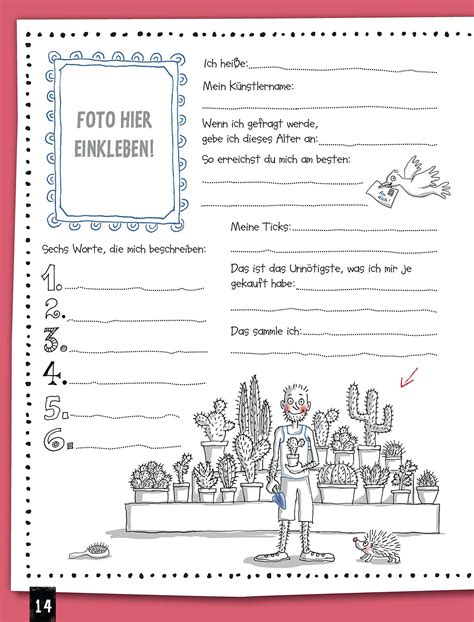 Ich heiße:
Mein Künstlername:
FOTO HIER
EINKLEBEN!
Wenn ich gefragt werde,
gebe ich dieses Alter an:
So erreichst du mich am besten:
An
dich!
Meine Ticks:
Sechs Worte, die mich beschreiben:
1.
2.
3.
4.
5.
6.
Das ist das Unnötigste, was ich mir je
gekauft habe:
Das sammle ich:
14